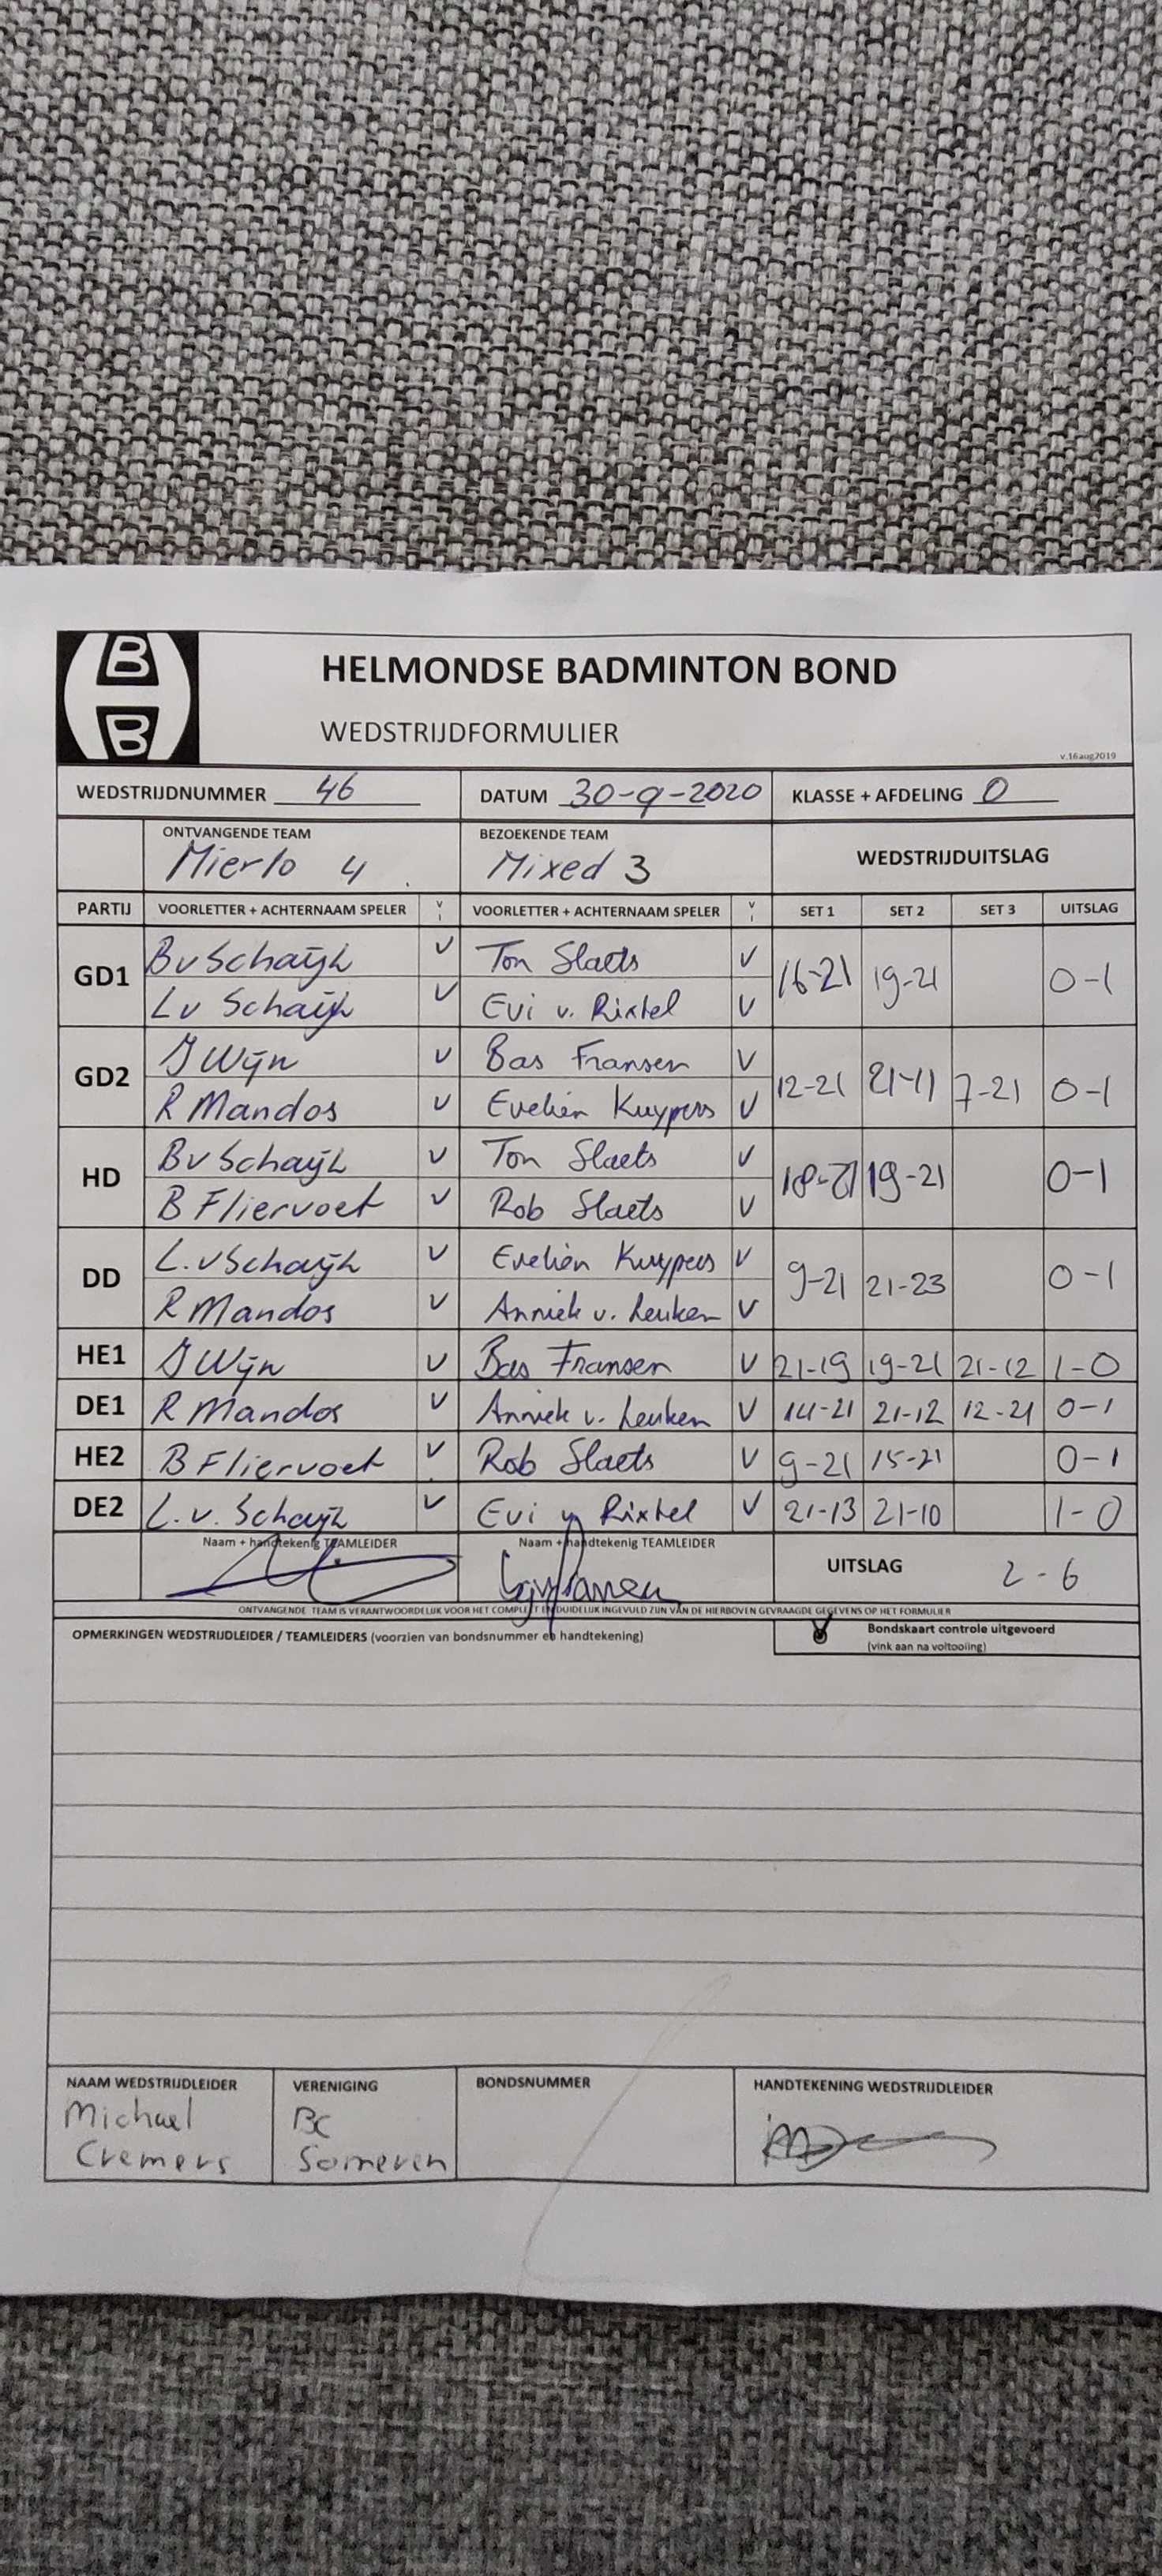 B
B
HELMONDSE BADMINTON BOND
WEDSTRIJDFORMULIER
v.16aug2019
WEDSTRIJDNUMMER 46 DATUM 30-9-2020 KLASSE + AFDELING 0
ONTVANGENDE TEAM BEZOEKENDE TEAM WEDSTRIJDUITSLAG
Mierlo 4 Mixed 3
PARTIJ VOORLETTER + ACHTERNAAM SPELER V VOORLETTER + ACHTERNAAM SPELER V SET 1 SET 2 SET 3 UITSLAG
GD1 Bv Schaijk V Ton Slaets V 16-21 19-21 0-1
Lv Schaijk V Evi v. Rixtel V
GD2 J Wijn V Bas Fransen V 12-21 21-11 7-21 0-1
R Mandos V Evelien Kuypers V
HD Bv Schaijk V Ton Slaets V 18-21 19-21 0-1
B Fliervoet V Rob Slaets V
DD L. v Schaijk V Evelien Kuypers V 9-21 21-23 0-1
R Mandos V Anniek v. Leuken V
HE1 J Wijn V Bas Fransen V 21-19 19-21 21-12 1-0
DE1 R Mandos V Anniek v. Leuken V 14-21 21-12 12-21 0-1
HE2 B Fliervoet V Rob Slaets V 9-21 15-21 0-1
DE2 L. v. Schaijk V Evi v Rixtel V 21-13 21-10 1-0
Naam + handtekenig TEAMLEIDER Naam + handtekenig TEAMLEIDER UITSLAG 2-6
ONTVANGENDE TEAM IS VERANTWOORDELIJK VOOR HET COMPLEET EN DUIDELIJK INGEVULD ZIJN VAN DE HIERBOVEN GEVRAAGDE GEGEVENS OP HET FORMULIER
OPMERKINGEN WEDSTRIJDLEIDER / TEAMLEIDERS (voorzien van bondsnummer en handtekening) Bondskaart controle uitgevoerd
(vink aan na voltooiing)
NAAM WEDSTRIJDLEIDER VERENIGING BONDSNUMMER HANDTEKENING WEDSTRIJDLEIDER
Michael BC
Cremers Someren